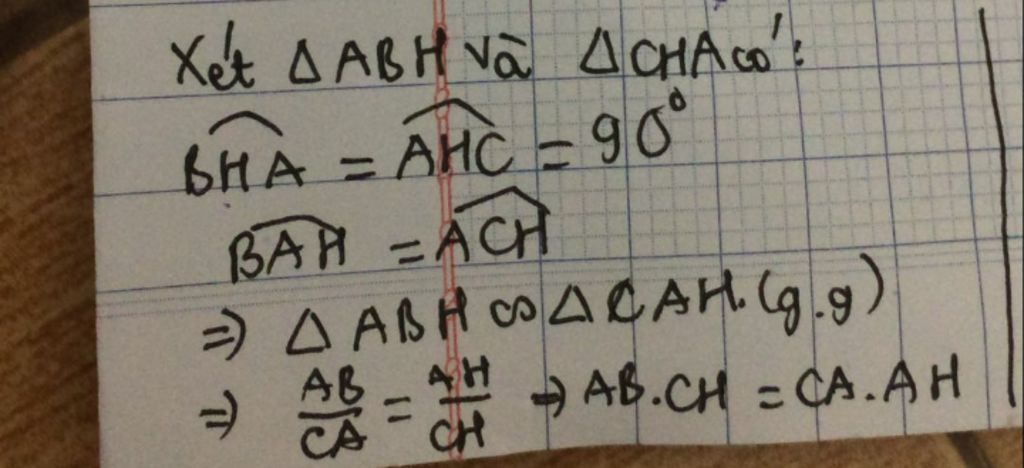 Xét Δ ABH và Δ CHA có:
BHA = AHC = 90°
BAH = ACH
=> Δ ABH ∽ Δ CAH. (g.g)
=> AB/CA = AH/CH => AB.CH = CA.AH